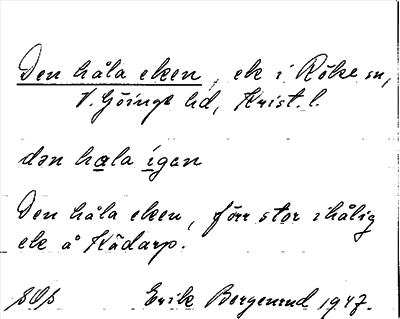 Den håla eken, ek i Röke sn,
V. Göinge hd, Krist. l.
dən hala igən
Den håla eken, förr stor ihålig
ek å Kädarp.
Erik Bergenrud 1947.